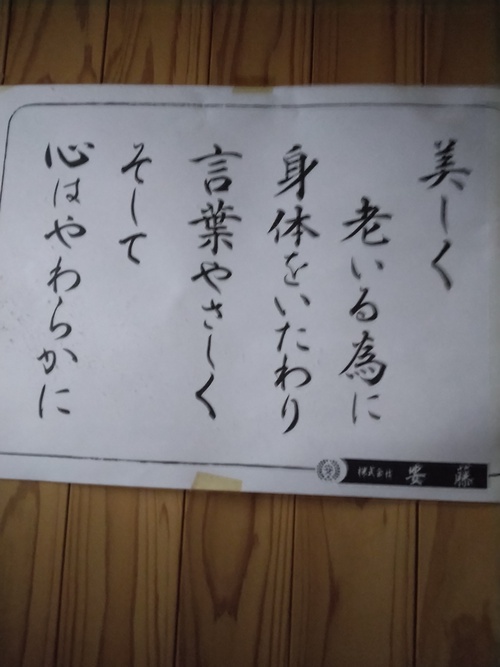 美しく
老いる為に
身体をいたわり
言葉やさしく
そして
心はやわらかに
株式会社 安藤